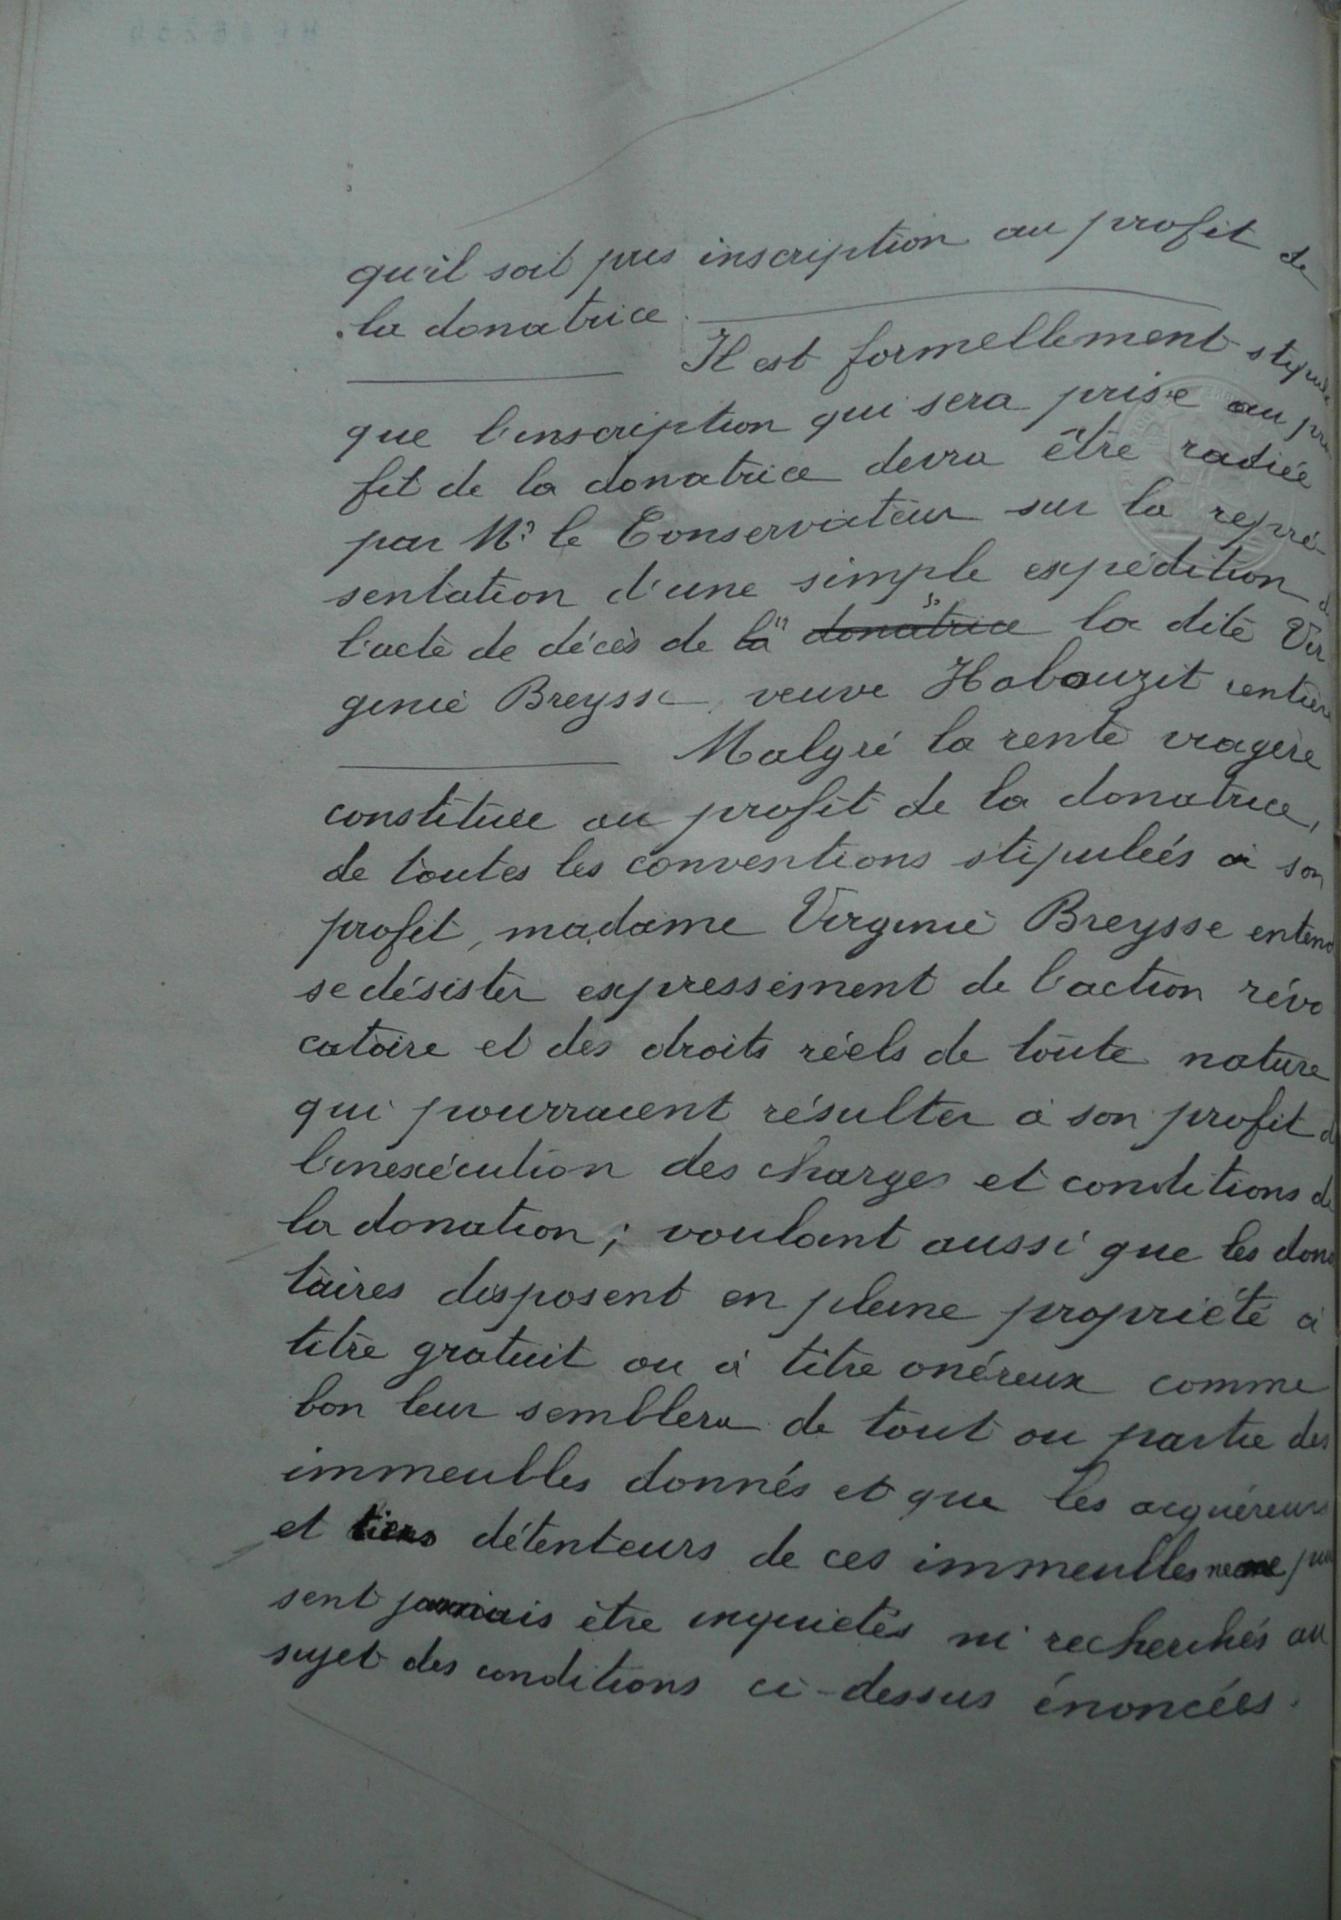 qu'il soit pris inscription au profit de
la donatrice.
Il est formellement stipulé
que l'inscription qui sera prise au pro
fit de la donatrice devra être radiée
par Mr le Conservateur sur la repré-
sentation d'une simple expédition de
l'acte de décès de la donatrice la dite Vir
ginie Breysse, veuve Habouzit rentière
Malgré la rente viagère
constituée au profit de la donatrice,
de toutes les conventions stipulées à son
profit, madame Virginie Breysse entend
se désister expressément de l'action révo
catoire et des droits réels de toute nature
qui pourraient résulter à son profit de
l'inexécution des charges et conditions de
la donation ; voulant aussi que les dona
taires disposent en pleine propriété à
titre gratuit ou à titre onéreux comme
bon leur semblera de tout ou partie des
immeubles donnés et que les acquéreurs
et tiers détenteurs de ces immeubles ne puis
sent jamais être inquiétés ni recherchés au
sujet des conditions ci-dessus énoncées.